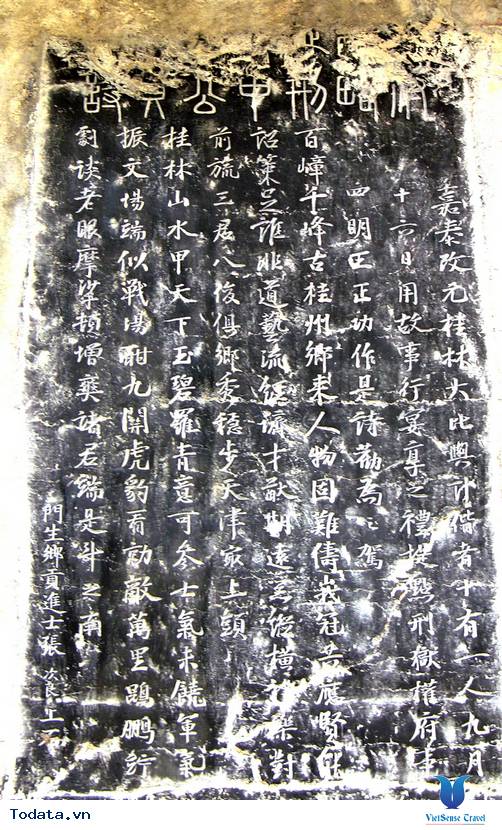 嘉泰改元桂林大比與計偕者十有一人九月
十六日用故事行宴享之禮提點刑獄權府事
四明王正功作是詩勸為之駕
百嶂千峰古桂州鄉來人物固難儔峩冠共應賢能
詔策足誰非道藝流經濟才猷期遠器縱橫禮樂對
前旒三君八俊俱鄉秀穩步天津最上頭
桂林山水甲天下玉碧羅青意可參士氣未饒軍氣
振文場端似戰場酣九關虎豹看勍敵萬里鵾鵬佇
劇談老眼摩挲頓增爽諸君端是斗之南
門生鄉貢進士張次良上石
Todata.vn
VietSense Travel